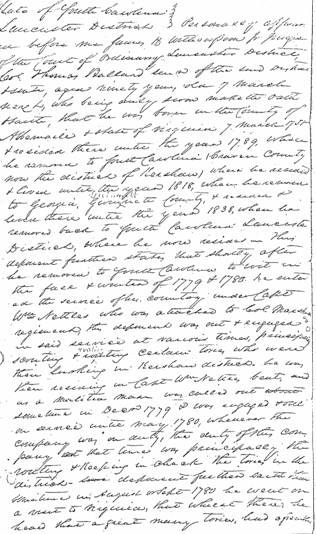 State of South Carolina
Lancaster District Personally appear
ed before me James B Witherspoon Judge
of the Court of Ordinary Lancaster District
Col Thomas Ballard Senr of the said District
& State, aged Ninety years, old 7 March
next, who being duly sworn maketh oath
& saith, that he was born in the County of
Albemarle & State of Virginia 7 March
& resided there until the year 1789, when
he removed to South Carolina Craven County
now the district of Kershaw, where he resided
& lived until the year 1818, when he removed
to Georgia, Gwinnett County, & resided &
lived there until the year 1838, when he
removed back to South Carolina Lancaster
District, where he now resides — This
deponent further states, that shortly after
he removed to South Carolina to wit in
the face & winter of 1779 & 1780. he enter
ed the service of his country under Capt
Wm Nettles who was attached to Col Marshal
regiment, the deponent was out & engaged
in said service at various times, principally
scouting & routing certain tories who were
then lurking in Kershaw district he was
then residing in Capt Wm Nettles beat, and
as a militia man was called out about
sometime in Decr 1779 & was engaged
in service until May 1780, whenever the
company was on duty, the duty of this com
pany at that time was principally the
routing & keeping in check the tories in the
district — deponent further saith that
sometime in August or Sept 1780 he went on
a visit to Virginia, that whilst there, he
heard that a great many tories, had